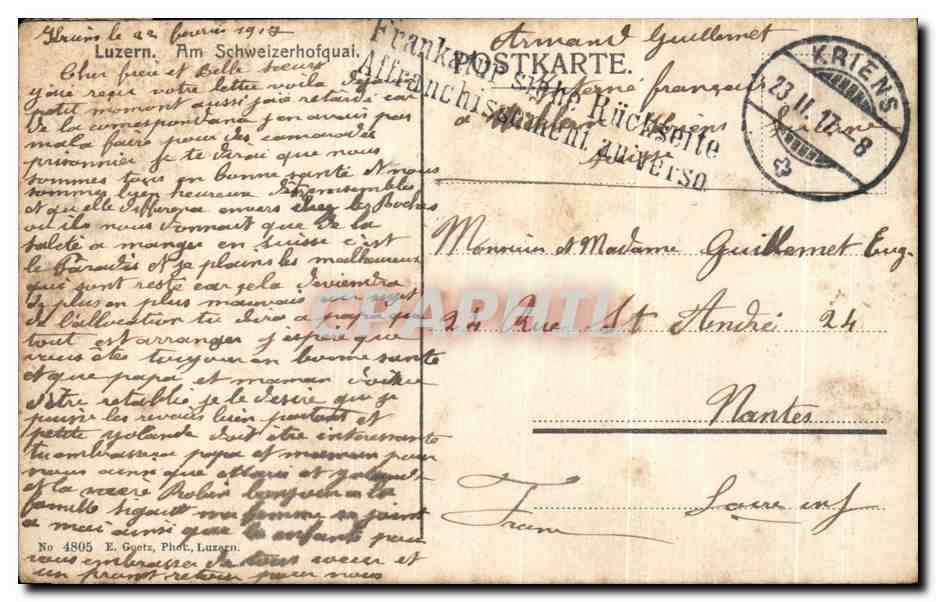 Kriens le 22 février 1917
Luzern. Am Schweizerhofquai.
Cher frère et Belle sœur
j'ai reçu votre lettre voila
petit moment aussi jaie retardé car
de la correspondance jen avais pas
mal a faire pour des camarades
prisonnier je te dirai que nous
sommes tous en bonne santé et nous
sommes byen heureux dêtre ensembles
et quelle differance envers chez les Boches
ou ils nous donnait que de la
saleté a manger en Suisse c'est
le Paradis et je plains les malheureux
qui sont resté car sela deviendra
de plus en plus mauvais
de l'allocation tu diras a papa que
tout est arranger j'espère que
vous êtes toujour en bonne santé
et que papa et maman
être retablie je le desire que je
puisse les revoir bien portant et
petite yolande doit être interessante
tu embrassera papa et maman pour
nous ainsi que Marie et yoland
et la mère Robin bonjour a la
famille Sigault ma femme se joint
a moi ainsi que le enfants pour
vous embrasser de tous cœur et
un prompt retour pour nous
No 4805 E. Goetz, Phot., Luzern.
POSTKARTE.
Frankatur siehe Rückseite
Affranchissement au verso
Armand Guillemet
Interné français
a Kriens Lucerne
Suisse
KRIENS
23.II.17.-8
Monsieur et Madame Guillemet Eug.
24 Rue St André 24
Nantes
France Loire inf
CPAPHIL